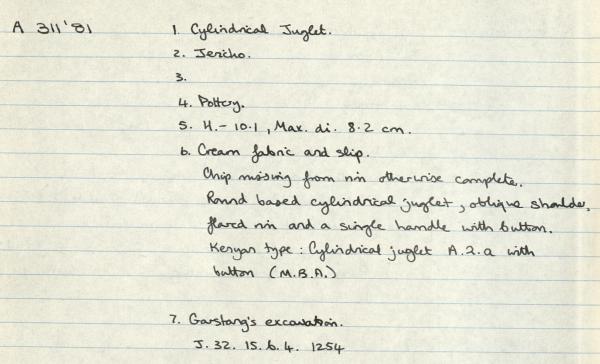 A 311'81
1. Cylindrical Juglet.
2. Jericho.
3.
4. Pottery.
5. H. - 10.1, Max. di. 8.2 cm.
6. Cream fabric and slip.
Chip missing from rim otherwise complete.
Round based cylindrical juglet, oblique shoulder,
flared rim and a single handle with button.
Kenyan type: Cylindrical juglet A.2.a with
button (M.B.A.)
7. Garstang's excavation.
J. 32. 15. 6. 4. 1254